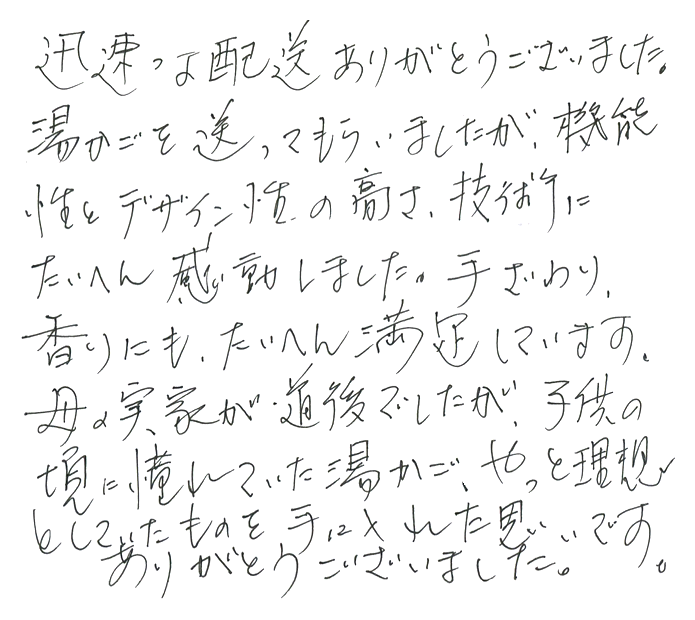 迅速な配送ありがとうございました。
湯かごを送ってもらいましたが、機能
性とデザイン性の高さ、技術に
たいへん感動しました。手ざわり、
香りにも、たいへん満足しています。
母の実家が道後でしたが、子供の
頃に憧れていた湯かご、やっと理想
としていたものを手に入れた思いです。
ありがとうございました。